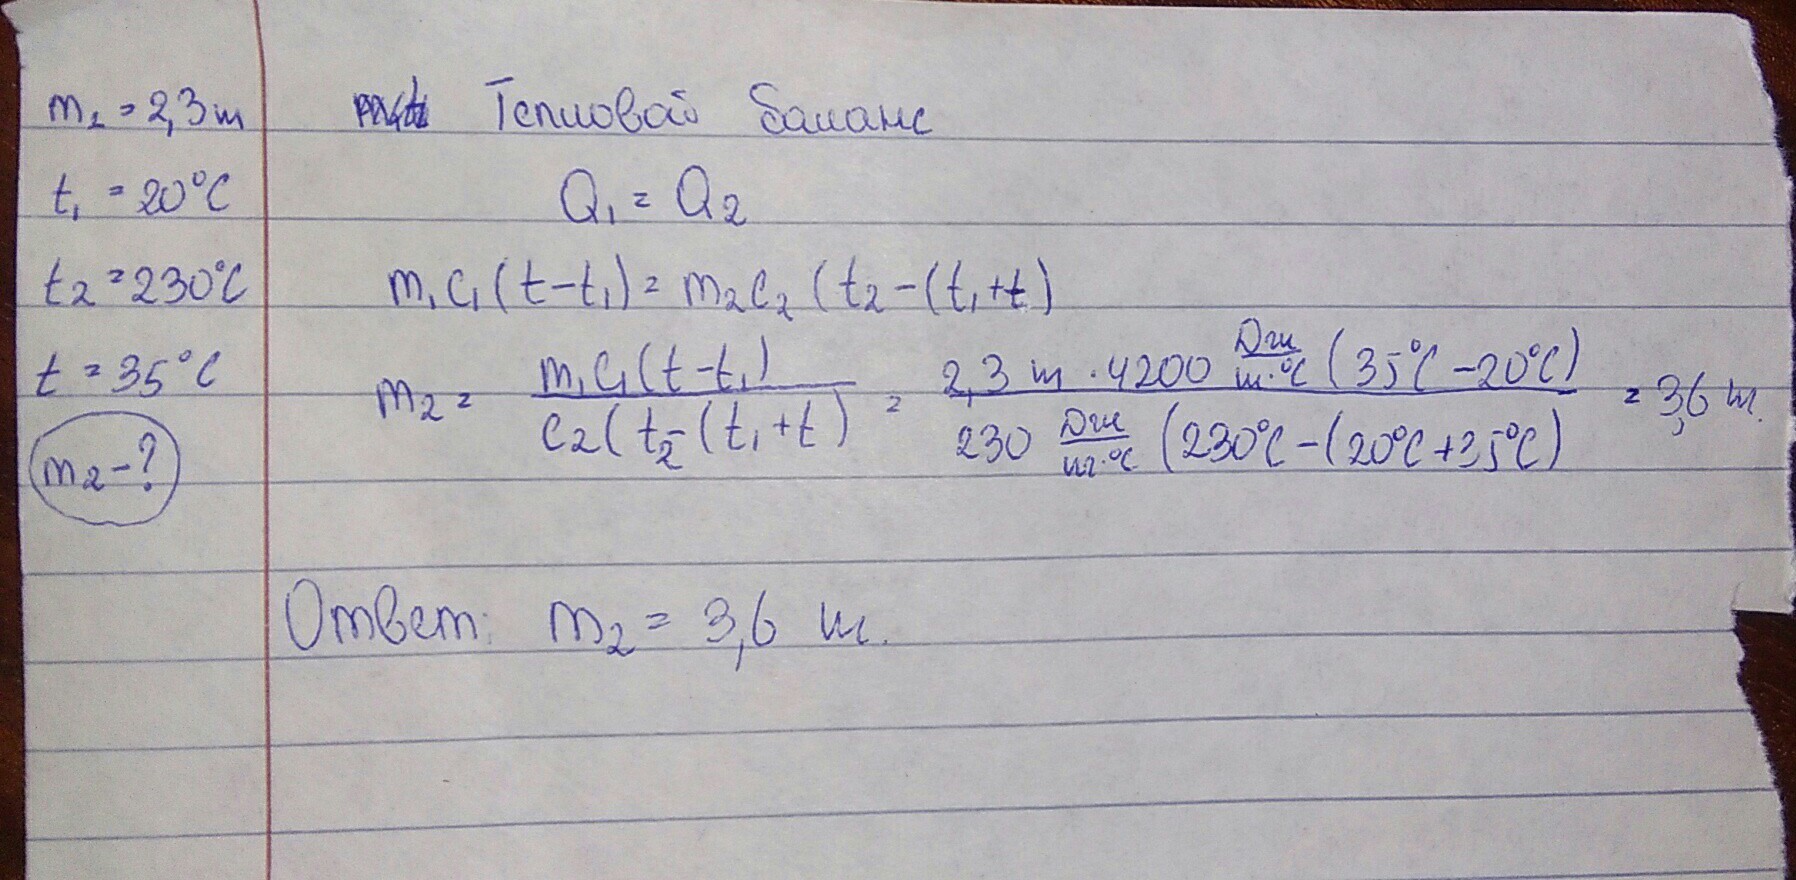 m₁ = 2,3 т
t₁ = 20°C
t₂ = 230°C
t = 35°C
m₂ - ?
Тепловой баланс
Q₁ = Q₂
m₁c₁(t-t₁) = m₂c₂(t₂-(t₁+t)
m₂ = m₁c₁(t-t₁) / c₂(t₂-(t₁+t) = 2,3 т · 4200 Дж/кг·°C (35°C - 20°C) / 230 Дж/кг·°C (230°C-(20°C+35°C) = 3,6 кг.
Ответ: m₂ = 3,6 кг.